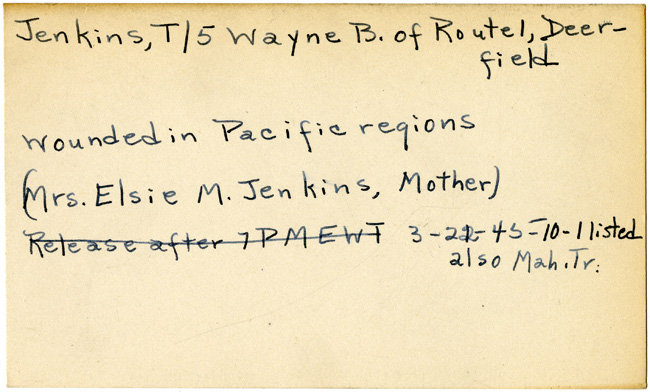 Jenkins, T/5 Wayne B. of Route 1, Deer-
field
wounded in Pacific regions
(Mrs. Elsie M. Jenkins, Mother)
Release after 7 PM EWT 3-22-45-10-1 listed
also Mah. Tr.